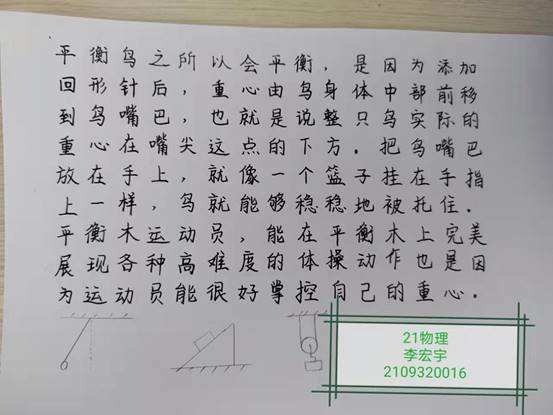 平衡鸟之所以会平衡，是因为添加
回形针后，重心由鸟身体中部前移
到鸟嘴巴，也就是说整只鸟实际的
重心在嘴尖这点的下方。把鸟嘴巴
放在手上，就像一个篮子挂在手指
上一样，鸟就能够稳稳地被托住。
平衡木运动员，能在平衡木上完美
展现各种高难度的体操动作也是因
为运动员能很好掌控自己的重心。
21物理
李宏宇
2109320016